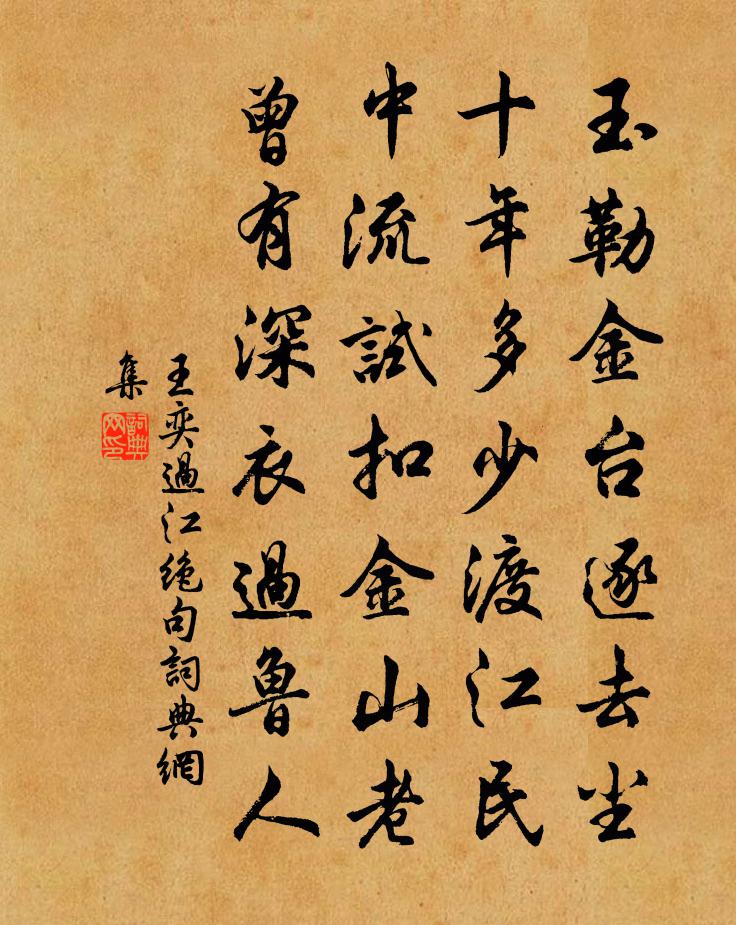 玉勒金台逐去尘
十年多少渡江民
中流試扣金山老
曾有深衣過魯人
王奕過江绝句詞典網
集
詞典
网印